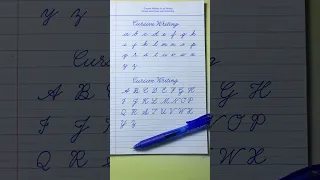 y z
Cursive Writing
a b c d e f g h
i j k l m n o p
q r s t u v w x
y z
Cursive Writing
A B C D E F G H
I J K L M N O P
Q R S T U V W X
Y Z